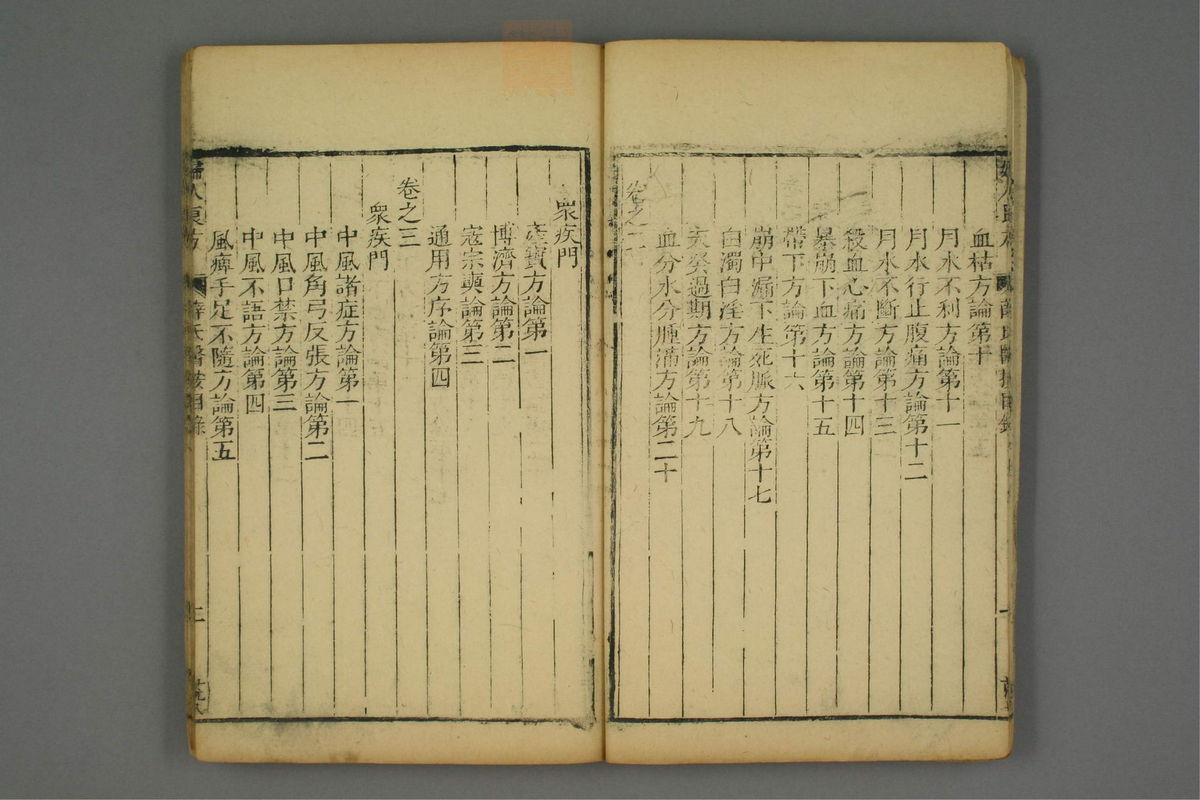 血枯方論第十
月水不利方論第十一
月水行止腹痛方論第十二
月水不斷方論第十三
殺血心痛方論第十四
暴崩下血方論第十五
帶下方論第十六
崩中漏下生死脈方論第十七
白濁白淫方論第十八
天癸過期方論第十九
血分水分腫滿方論第二十
卷之二
衆疾門
産寶方論第一
博濟方論第二
寇宗奭論第三
通用方序論第四
卷之三
衆疾門
中風諸症方論第一
中風角弓反張方論第二
中風口禁方論第三
中風不語方論第四
風痺手足不隨方論第五
婦人良方
薛氏醫按目錄
二